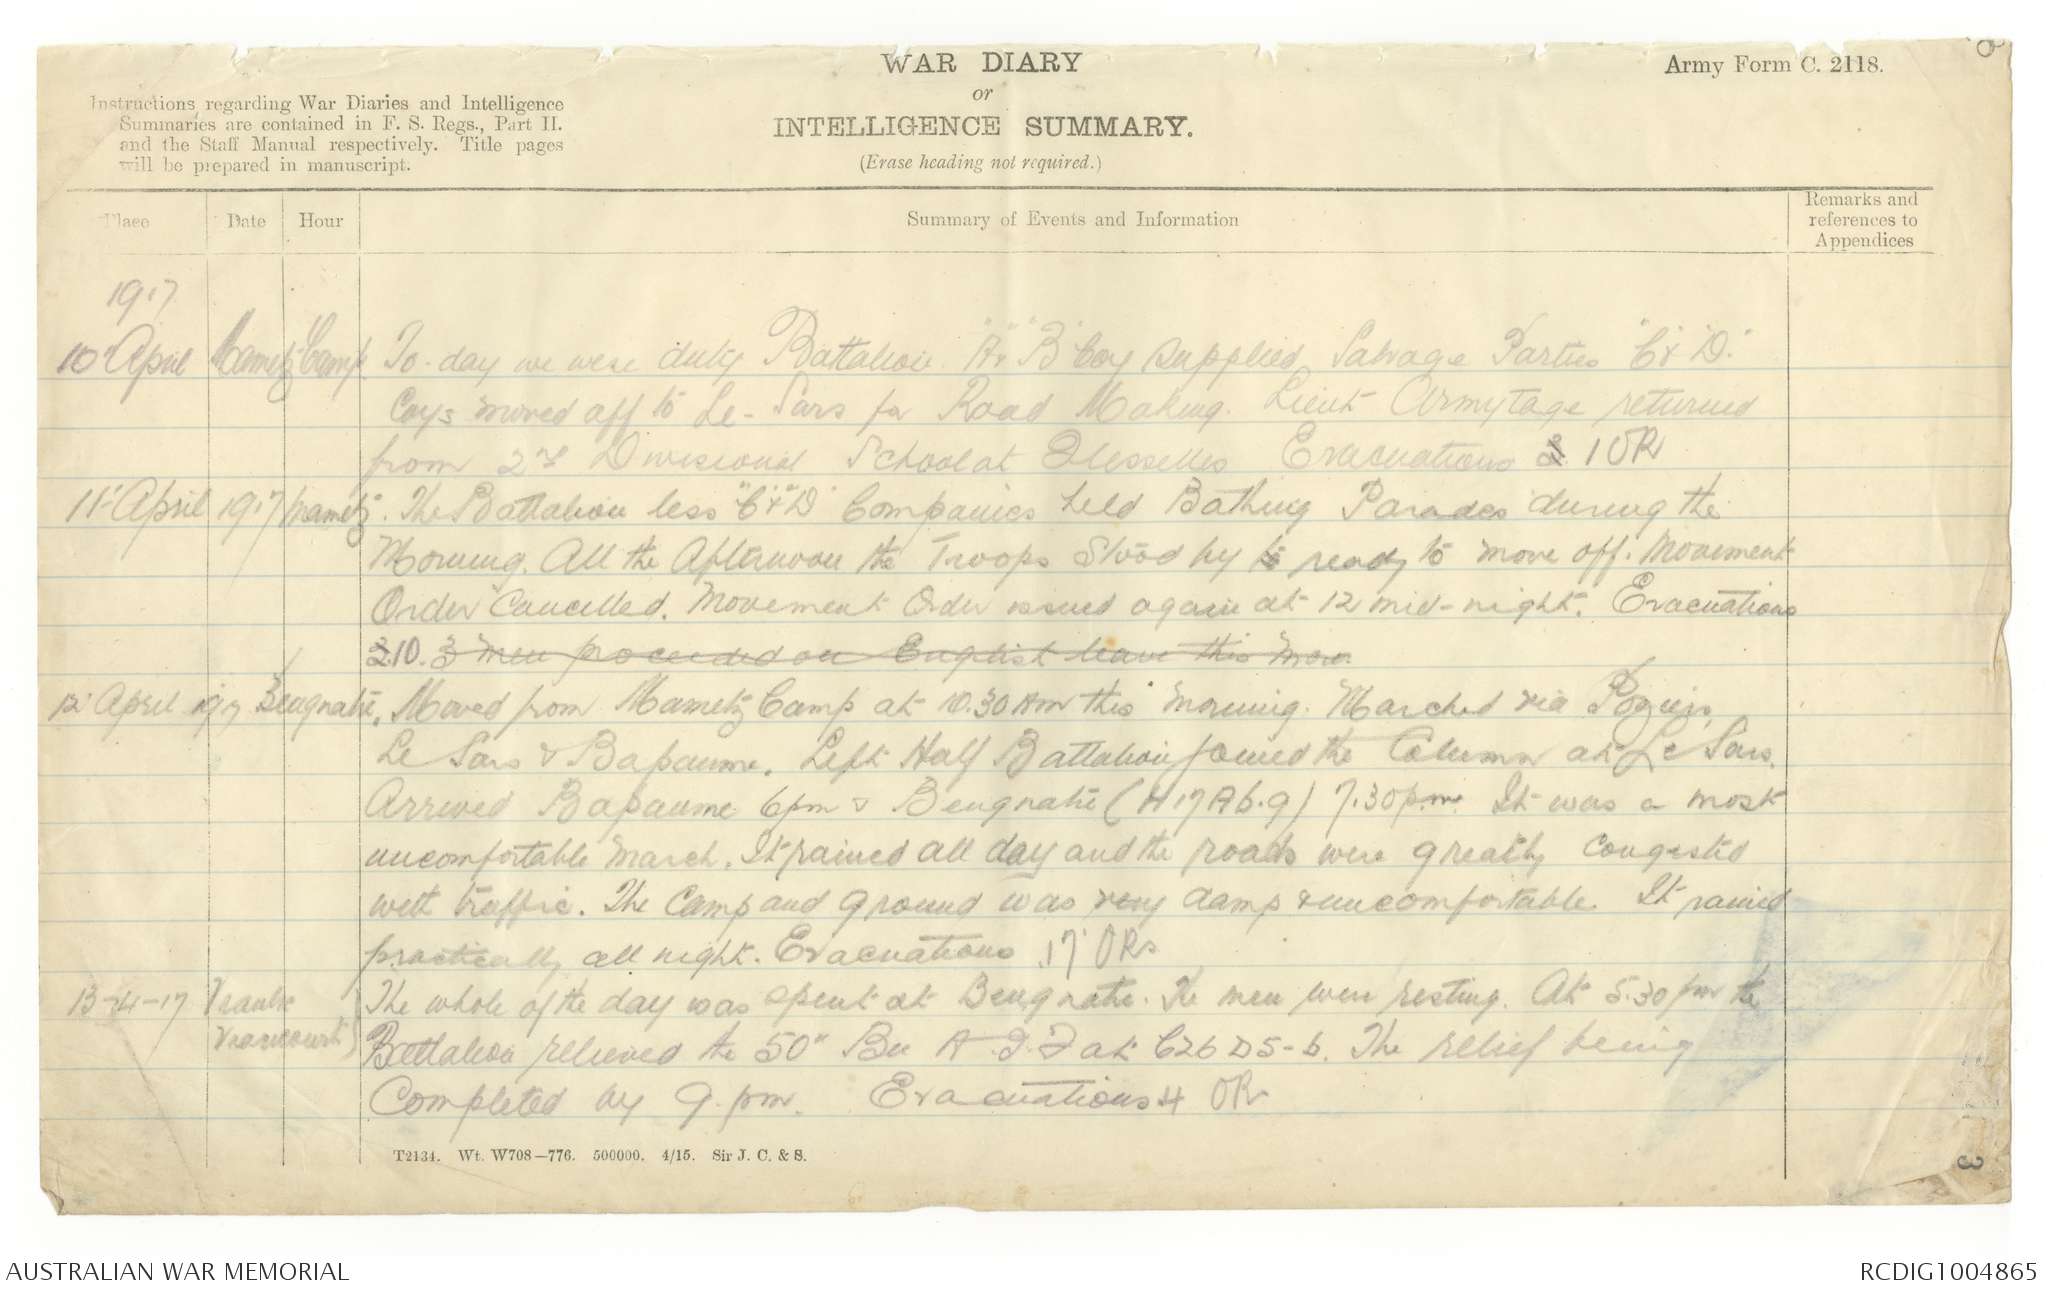 WAR DIARY
or
INTELLIGENCE SUMMARY.
(Erase heading not required.)
Army Form C. 2118.
Instructions regarding War Diaries and Intelligence
Summaries are contained in F. S. Regs., Part II.
and the Staff Manual respectively. Title pages
will be prepared in manuscript.
Place Date Hour Summary of Events and Information Remarks and references to Appendices
1917
10 April Mametz Camp To-day we were duty Battalion. "A & B" Coy supplied Salvage Parties "C & D"
Coys moved off to Le-Sars for Road Making. Lieut Armytage returned
from 2nd Divisional School at Flesselles Evacuations 1 OR
11 April 1917 Mametz. The Battalion less "C & D" Companies held Bathing Parades during the
Morning. All the Afternoon the Troops Stood by to ready to move off. Movement
Order Cancelled. Movement Order issued again at 12 mid-night. Evacuations
10. 3 men proceeded on English leave this Morn.
12 April 1917 Beugnatre. Moved from Mametz Camp at 10.30 Am this Morning. Marched via Pozier,
Le Sars & Bapaume. Left Half Battalion joined the Column at Le Sars.
Arrived Bapaume 6pm & Beugnatre (H 17 A b.9) 7.30 p.m. It was a most
uncomfortable March. It rained all day and the roads were greatly congested
with traffic. The Camp and ground was very damp & uncomfortable. It rained
practically all night. Evacuations 17 ORs
13-4-17 Vraucourt) The whole of the day was spent at Beugnatre. The men were resting. At 5.30 pm the
Battalion relieved the 50th Bn A.I.F at C26 D5-6. The relief being
Completed by 9. pm. Evacuations 4 OR
T2134. Wt. W708—776. 500000. 4/15. Sir J. C. & S.
3
AUSTRALIAN WAR MEMORIAL
RCDIG1004865